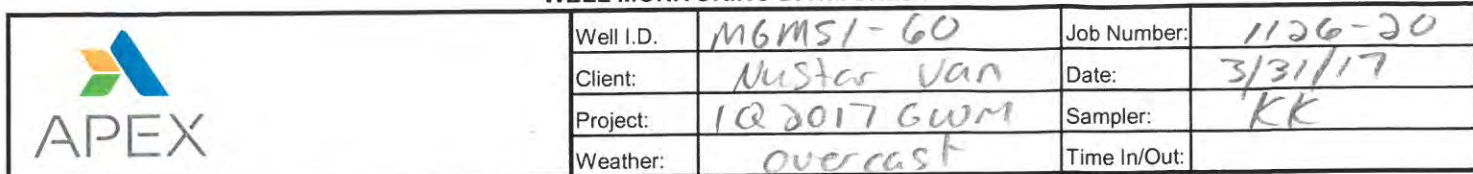 Well I.D. MGMS1-60 Job Number: 1126-20
Client: NuStar Van Date: 3/31/17
Project: 1Q 2017 GWM Sampler: KK
Weather: overcast Time In/Out:
APEX